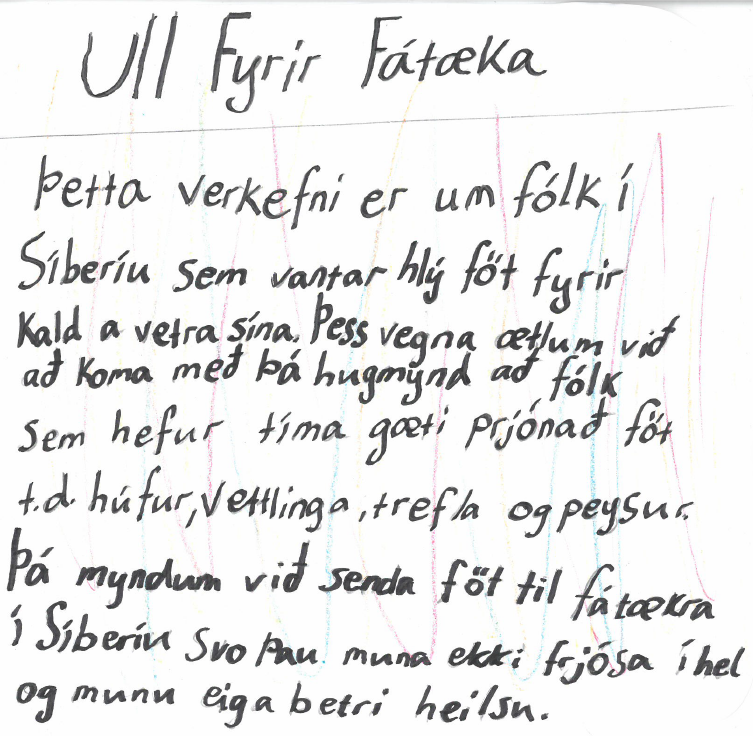 Ull Fyrir Fátæka
Þetta verkefni er um fólk í
Síberíu sem vantar hlý föt fyrir
kald a vetra sína. Þess vegna ætlum við
að koma með þá hugmynd að fólk
sem hefur tíma gæti prjónað föt
t.d. húfur, vettlinga, trefla og peysur.
Þá myndum við senda föt til fátækra
í Síberíu svo þau muna ekki frjósa í hel
og munu eiga betri heilsu.